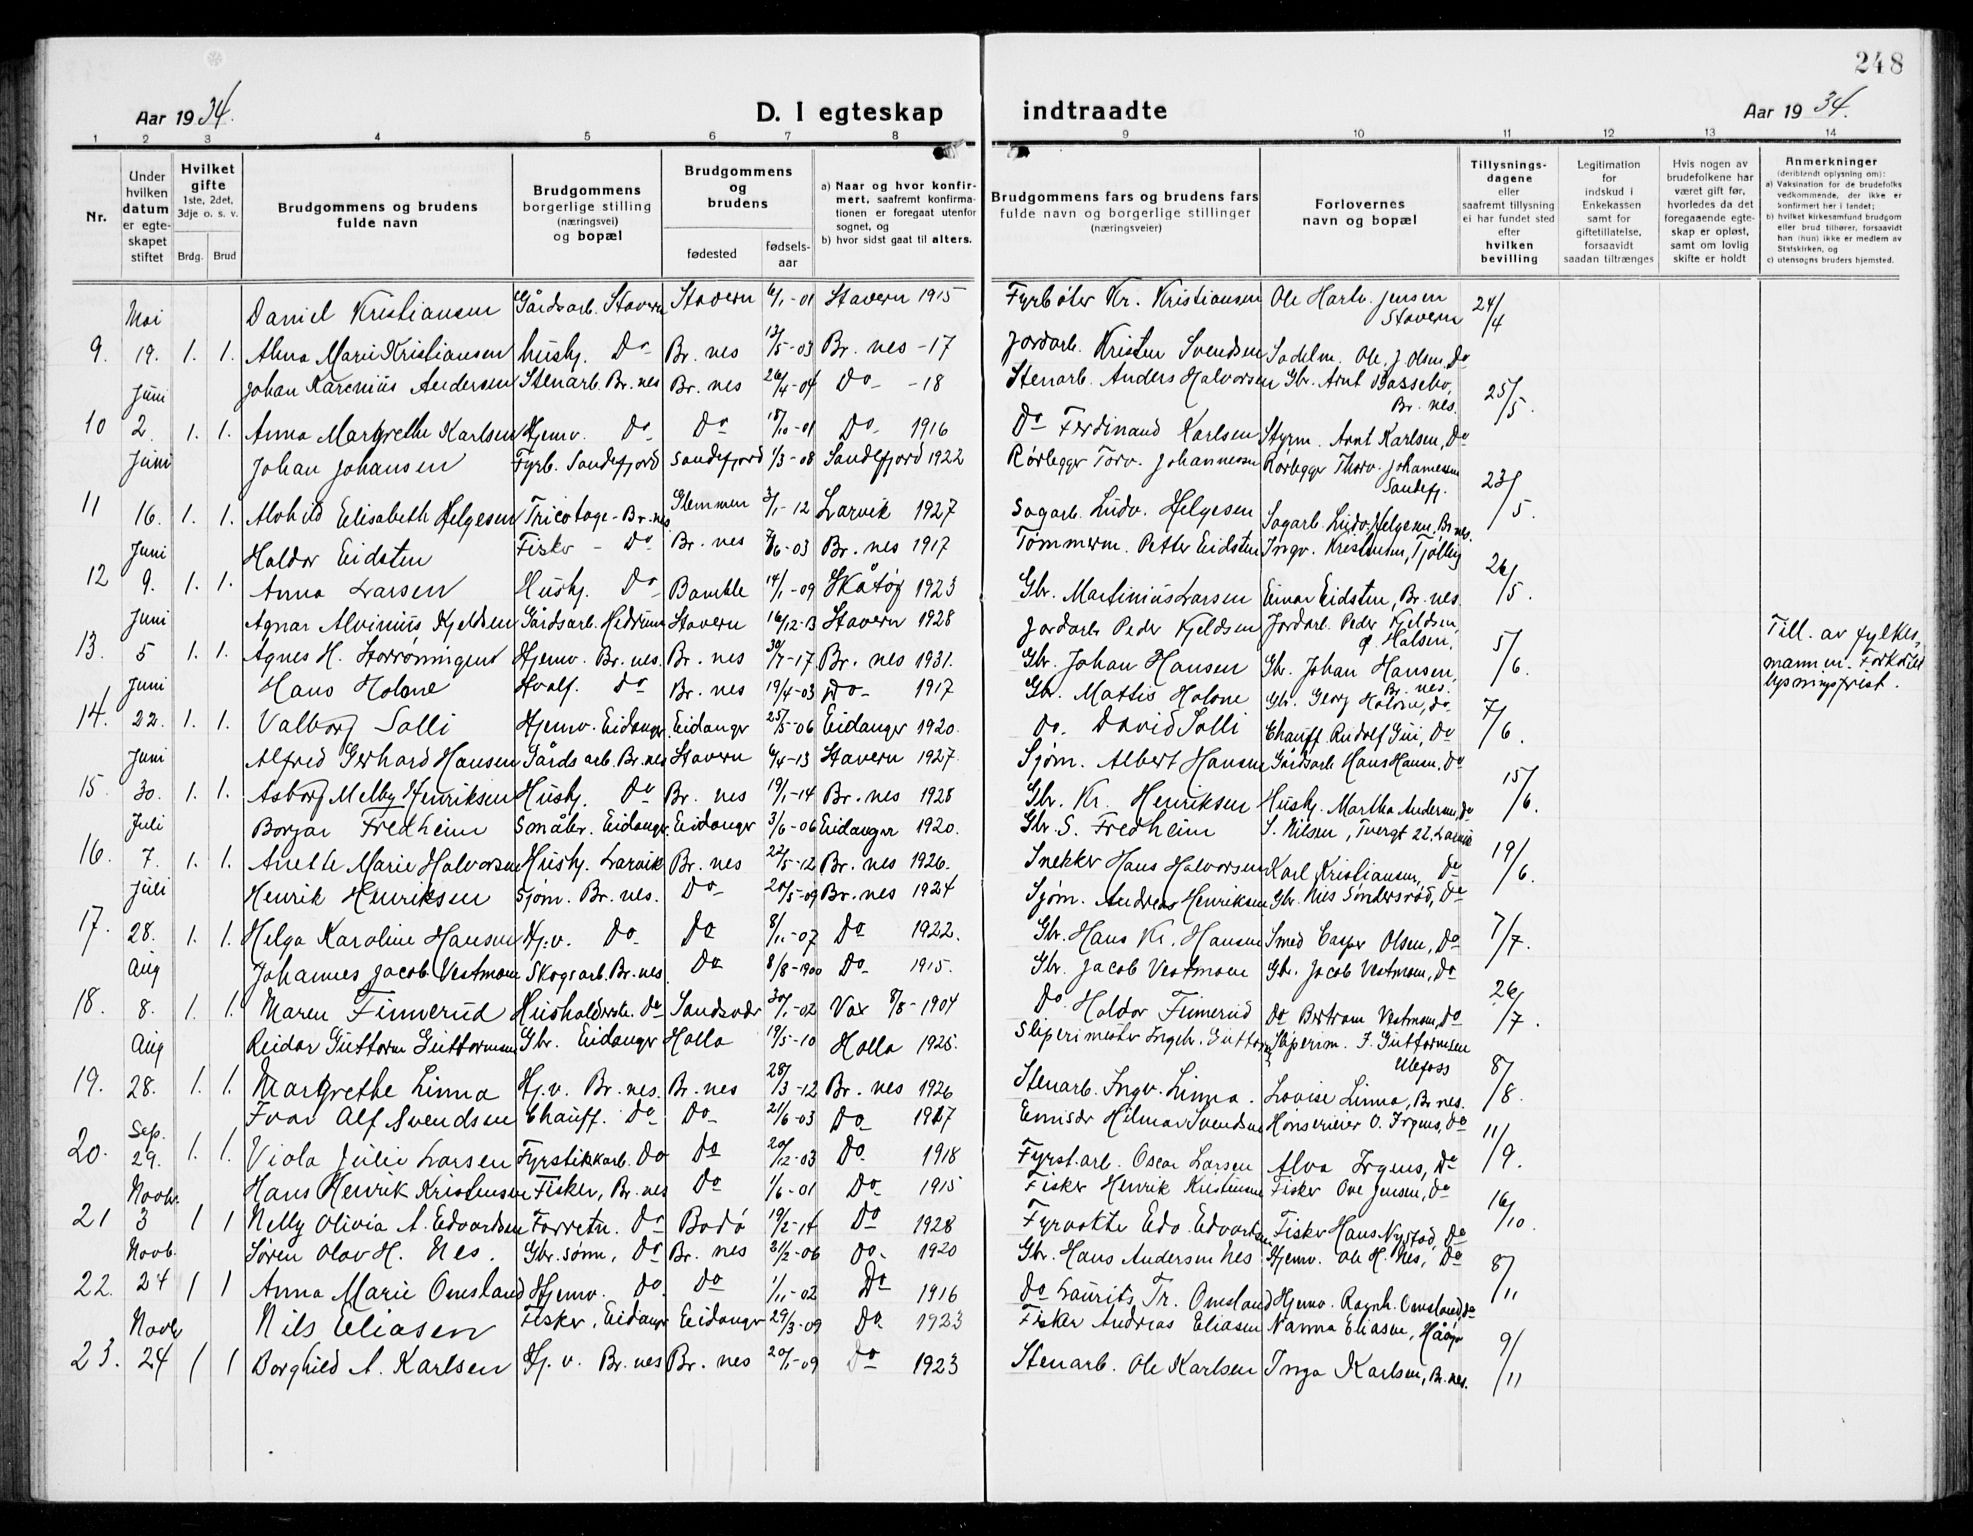 248
Aar 1934.
D. I egteskap indtraadte
Aar 1934.
1 2 3 4 5 6 7 8 9 10 11 12 13 14
Nr.
Under hvilken datum er egteskapet stiftet
Hvilket gifte 1ste, 2det, 3dje o. s. v.
Brdg. Brud
Brudgommens og brudens fulde navn
Brudgommens borgerlige stilling (næringsvei) og bopæl
Brudgommens og brudens
fødested
fødselsaar
a) Naar og hvor konfirmert, saafremt konfirmationen er foregaat utenfor sognet, og
b) hvor sidst gaat til alters.
Brudgommens fars og brudens fars fulde navn og borgerlige stillinger (næringsveier)
Forlovernes navn og bopæl
Tillysningsdagene eller saafremt tillysning ei har fundet sted efter hvilken bevilling
Legitimation for indskud i Enkekassen samt for giftetillatelse, forsaavidt saadan tiltrænges
Hvis nogen av brudefolkene har været gift før, hvorledes da det foregaaende egteskap er opløst, samt om lovlig skifte er holdt
Anmerkninger (deriblandt oplysning om):
a) Vaksination for de brudefolks vedkommende, der ikke er konfirmert her i landet;
b) hvilket kirkesamfund brudgom eller brud tilhører, forsaavidt han (hun) ikke er medlem av Statskirken, og
c) utensogns bruders hjemsted.
Mai Daniel Kristiansen Gårdsarb. Stavern Stavern 6/1-01 Stavern 1915 Fyrbøter Kr. Kristiansen Ole Hartv. Jensen Stavern 24/4
9. 19. 1. 1. Alma Marie Kristiansen husbj. Do Br. nes 12/5-03 Br. nes -17 Jordarb. Kristen Svendsen Sadelm. Ole J. Olsen, Do
Juni Johan Karenius Andersen Stenarb. Br. nes Br. nes 26/4-04 Do -18 Stenarb. Anders Halvorsen Gbr. Arnt Bassebo, Br. nes. 25/5.
10 2. 1. 1. Anna Margrethe Karlsen Hjemv. Do Do 18/10-01 Do 1916 Do Ferdinand Karlsen Styrm. Arnt Karlsen, Do
Juni Johan Johansen Fyrb. Sandefjord Sandefjord 1/3-08 Sandefjord 1922 Rørlegger Torv. Johannessen Rørlegger Thorv. Johannessen Sandefj. 23/5.
11 16. 1. 1. Alvhild Elisabeth Helgesen Tricotage- Br. nes Glemmen 3/1-12 Larvik 1927 Sagarb. Ludv. Helgesen Sagarb. Ludv. Helgesen, Br. nes.
Juni Haldor Eidsten Fisker - Do Br. nes 7/6-03 Br. nes 1917 Tømmerm. Petter Eidsten Ingv. Kristensen, Tjølling 26/5.
12 9. 1. 1. Anna Larsen Husbj. Do Bamble 14/1-09 Skåtøy 1923 Gbr. Martinius Larsen Einar Eidsten, Br. nes.
Juni Agnar Alvinius Kjeldsen Gårdsarb. Hedrum Stavern 16/12-13 Stavern 1928 Jordarb. Peder Kjeldsen Jordarb. Peder Kjeldsen, Ø. Halsen. 5/6. Till. av fylkesmannen. Forkortet lysningsfrist.
13. 5 1. 1. Agnes H. Storrønningen Hjemv. Br. nes. Br. nes 30/7-17 Br. nes 1931. Gbr. Johan Hansen Gbr. Johan Hansen, Br. nes.
Juni Hans Holane Hvalf. Do Br. nes 19/4-03 Do 1917 Gbr. Mathis Holane Gbr. Georg Holane, Do 7/6.
14. 22. 1. 1. Valborg Solli Hjemv. Eidanger Eidanger 25/5-06 Eidanger 1920. Do. David Solli Chauff. Rudolf Gui, Do
Juni Alfred Gerhard Hansen Gårdsarb. Br. nes Stavern 6/4-13 Stavern 1927. Sjøm. Albert Hansen Gårdsarb Hans Hansen, Do 15/6.
15. 30. 1. 1. Asborg Melby Henriksen Husbj. Do Br. nes 19/1-14 Br. nes 1928 Gbr. Kr. Henriksen Husbj. Martha Andersen, Do
Juli Borgar Fredheim Småbr. Eidanger Eidanger 3/6-06 Eidanger 1920. Gbr. S. Fredheim S. Nilsen, Tvergt 22. Larvik 19/6.
16. 7. 1. 1. Anette Marie Halvorsen Husbj. Larvik Br. nes 22/5-12 Br. nes 1926. Snekker Hans Halvorsen Karl Kristiansen, Do
Juli Henrik Henriksen Sjøm. Br. nes. Do 20/5-09 Br. nes 1924 Sjøm. Andreas Henriksen Gbr. Nils Søndersrød, Do 7/7.
17. 28. 1. 1. Helga Karoline Hansen Hj.v. Do Do 8/11-07 Do 1922. Gbr. Hans Kr. Hansen Smed Casper Olsen, Do
Aug Johannes Jacob Vestmoen Skogsarb. Br. nes. Do 8/8-1900 Do 1915. Gbr. Jacob Vestmoen Gbr. Jacob Vestmoen, Do 26/7.
18. 8. 1. 1. Maren Finnerud Husholdersk. Do Sandsvær 30/1-02 8/8-1904 Do Haldor Finnerud Do Bertram Vestmoen, Do
Aug Reidar Guttorm Guttormsen Gbr. Eidanger Holla 19/5-10 Holla 1925. Sliperimester Ingebr. Guttormsen Sliperim. I. Guttormsen Ulefoss 8/8.
19. 28. 1. 1. Margrethe Linna Hj.v. Br. nes. Br. nes 28/3-12 Br. nes 1926 Stenarb. Ingv. Linna. Lovise Linna, Br. nes.
Sep. Ivar Alf Svendsen Chauff. Do Do 21/6-03 Do 1917 Emisær Hilmar Svendsen Hønseeier O. Irgens, Do 11/9.
20. 29. 1. 1. Viola Julie Larsen Fyrstikkarb. Do Do 20/12-03 Do 1918 Fyrst.arb. Oscar Larsen Alva Irgens, Do
Novbr. Hans Henrik Kristensen Fisker, Br. nes Do 1/6-01 Do 1915 Fisker Henrik Kristensen Fisker Ove Jensen, Do 16/10.
21 3 1 1 Nelly Olivia A. Edvardsen Forretn. Do Bodø 19/2-14 Do 1928 Fyrvokter Edv. Edvardsen Fisker Hans Nystad, Do
Novb. Søren Olav H. Nes. Gbr.sønn, Do Br. nes 21/2-06 Do. 1920 Gbr. Hans Andersen Nes Hjemv. Ole H. Nes, Do 8/11
22. 24 1 1 Anna Marie Omsland Hjemv. Do. Do 1/11-02 Do 1916 Do Laurits Tr. Omsland Hjemv. Ragnh. Omsland, Do
Novbr Nils Eliasen Fisker, Eidanger Eidanger 29/3-09 Do 1923 Fisker Andreas Eliasen Nanna Eliasen, Håøya 9/11
23. 24 1 1 Borghild A. Karlsen Hj. v. Br. nes Br. nes 20/1-09 Do 1923 Stenarb. Ole Karlsen Inga Karlsen, Br. nes.